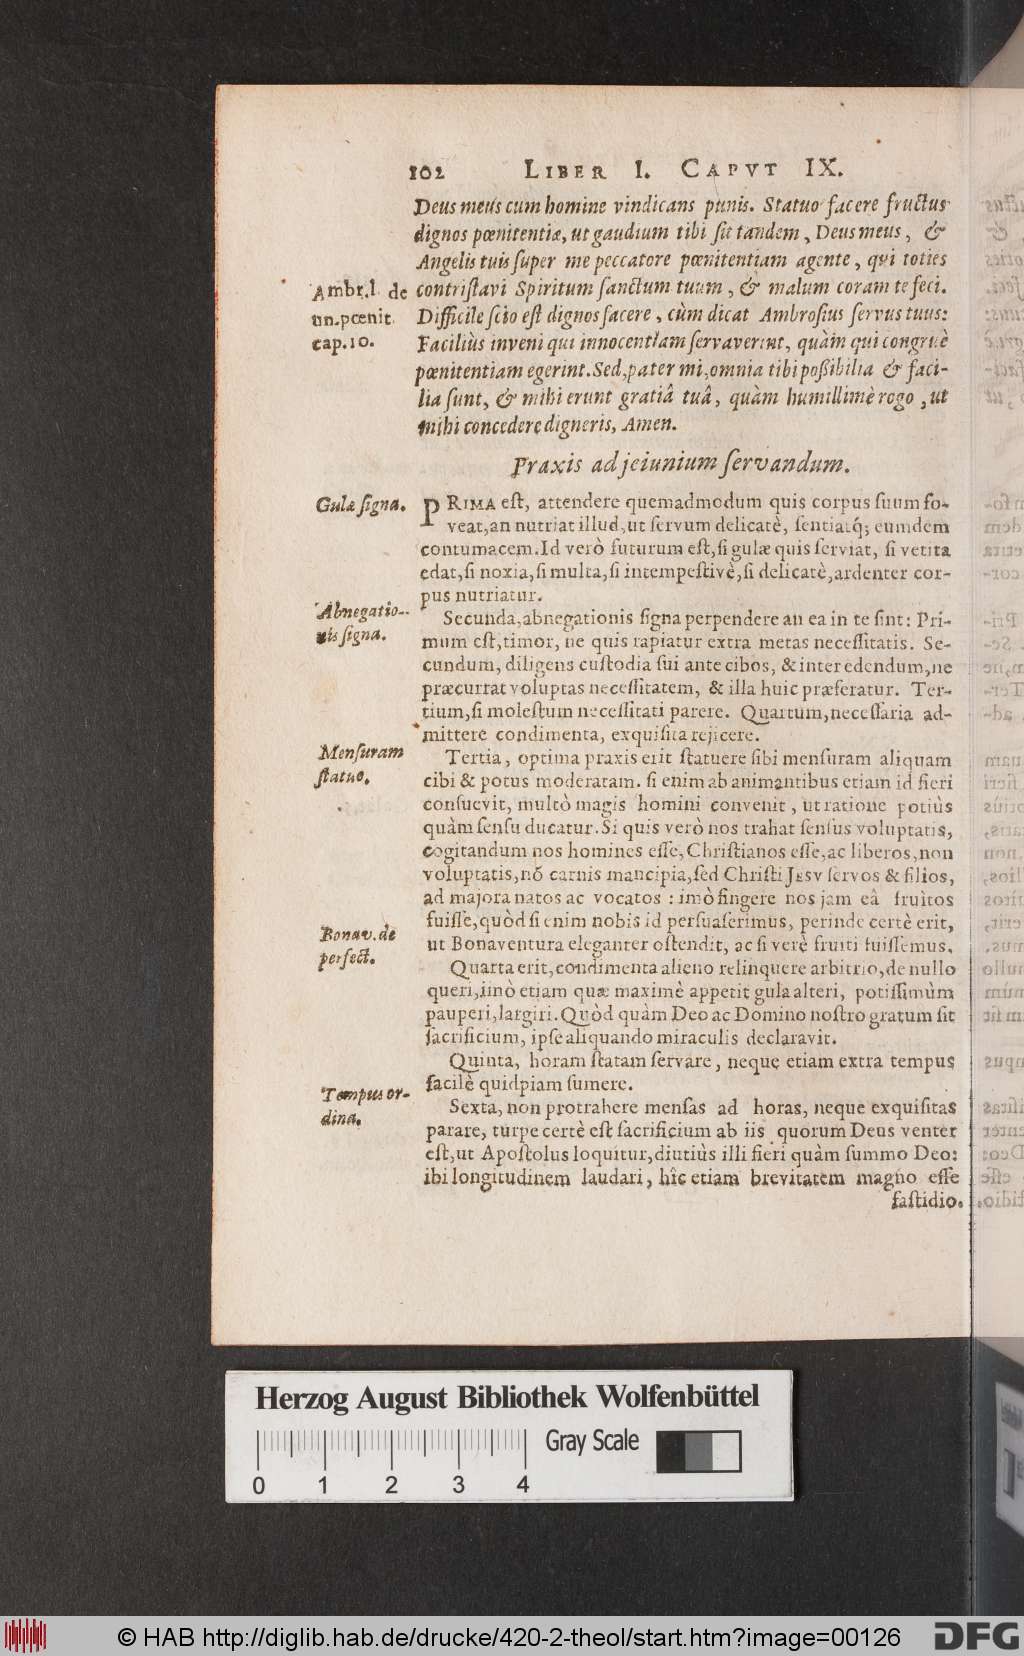 102 LIBER I. CAPVT IX.
Deus meus cum homine vindicans punis. Statuo facere fructus
dignos pœnitentiæ, ut gaudium tibi sit tandem, Deus meus, &
Angelis tuis super me peccatore pœnitentiam agente, qui toties
contristavi Spiritum sanctum tuum, & malum coram te feci.
Difficile scio est dignos facere, cùm dicat Ambrosius servus tuus:
Faciliùs inveni qui innocentiam servaverint, quàm qui congruè
pœnitentiam egerint. Sed, pater mi, omnia tibi possibilia & faci-
lia sunt, & mihi erunt gratiâ tuâ, quàm humillimè rogo, ut
mihi concedere digneris, Amen.
Ambr. l. de
un. pœnit.
cap. 10.
Praxis ad jeiunium servandum.
Gulæ signa.
PRIMA est, attendere quemadmodum quis corpus suum fo-
veat, an nutriat illud, ut servum delicatè, sentiatq; eumdem
contumacem. Id verò futurum est, si gulæ quis serviat, si vetita
edat, si noxia, si multa, si intempestivè, si delicatè, ardenter cor-
pus nutriatur.
Abnegatio-
nis signa.
Secunda, abnegationis signa perpendere an ea in te sint: Pri-
mum est, timor, ne quis rapiatur extra metas necessitatis. Se-
cundum, diligens custodia sui ante cibos, & inter edendum, ne
præcurrat voluptas necessitatem, & illa huic præferatur. Ter-
tium, si molestum necessitati parere. Quartum, necessaria ad-
mittere condimenta, exquisita rejicere.
Mensuram
statuo.
Tertia, optima praxis erit statuere sibi mensuram aliquam
cibi & potus moderatam. si enim ab animantibus etiam id fieri
consuevit, multò magis homini convenit, ut ratione potiùs
quàm sensu ducatur. Si quis verò nos trahat sensus voluptatis,
cogitandum nos homines esse, Christianos esse, ac liberos, non
voluptatis, nõ carnis mancipia, sed Christi JESV servos & filios,
ad majora natos ac vocatos: imò fingere nos jam eâ fruitos
fuisse, quòd si enim nobis id persuaserimus, perinde certè erit,
ut Bonaventura eleganter ostendit, ac si verè fruiti fuissemus.
Bonav. de
perfect.
Quarta erit, condimenta alieno relinquere arbitrio, de nullo
queri, imò etiam quæ maximè appetit gula alteri, potissimùm
pauperi, largiri. Quòd quàm Deo ac Domino nostro gratum sit
sacrificium, ipse aliquando miraculis declaravit.
Quinta, horam statam servare, neque etiam extra tempus
facilè quidpiam sumere.
Tempus or-
dina.
Sexta, non protrahere mensas ad horas, neque exquisitas
parare, turpe certè est sacrificium ab iis quorum Deus venter
est, ut Apostolus loquitur, diutiùs illi fieri quàm summo Deo:
ibi longitudinem laudari, hîc etiam brevitatem magno esse
fastidio.
Herzog August Bibliothek Wolfenbüttel
Gray Scale
0 1 2 3 4
© HAB http://diglib.hab.de/drucke/420-2-theol/start.htm?image=00126
DFG